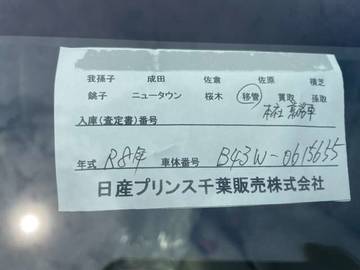 我孫子 成田 佐倉 佐原 積芝
銚子 ニュータウン 桜木 移管 買取 孫取
本社
入庫(査定書)番号
年式 R8年 車体番号 B43W-0615655
日産プリンス千葉販売株式会社